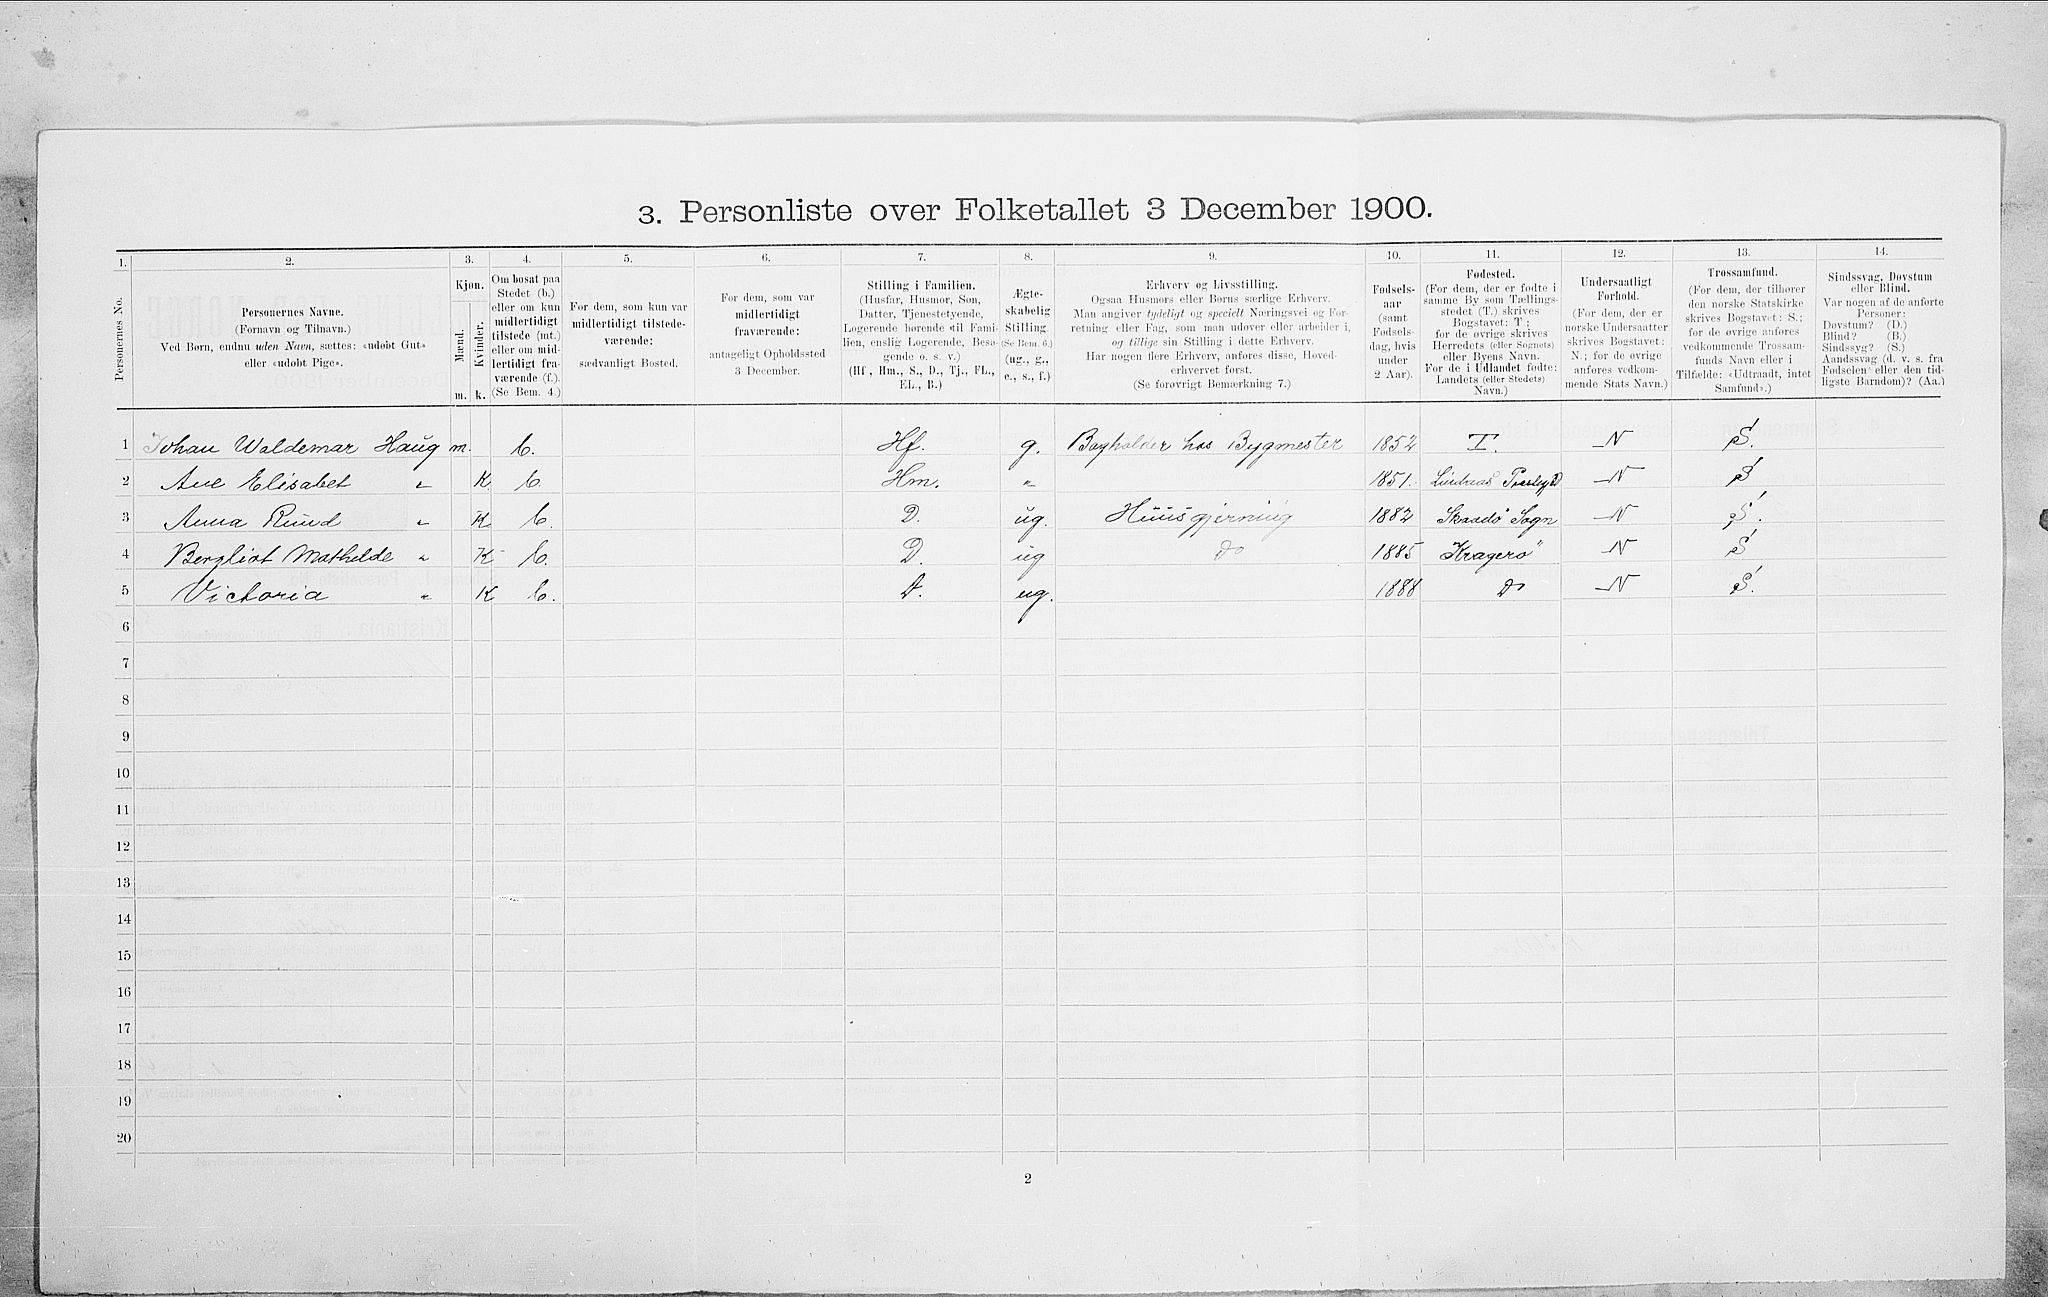 3. Personliste over Folketallet 3 December 1900.
1. 2. 3. 4. 5. 6. 7. 8. 9. 10. 11. 12. 13. 14.
Personernes No.
Personernes Navne.
(Fornavn og Tilnavn.)
Ved Børn, endnu uden Navn, sættes: «udøbt Gut»
eller «udøbt Pige».
Kjøn.
Mænd.
Kvinder.
m. k.
Om bosat paa
Stedet (b.)
eller om kun
midlertidigt
tilstede (mt.)
eller om mid-
lertidigt fra-
værende (f.).
(Se Bem. 4.)
For dem, som kun var
midlertidigt tilstede-
værende:
sædvanligt Bosted.
For dem, som var
midlertidigt
fraværende:
antageligt Opholdssted
3 December.
Stilling i Familien.
(Husfar, Husmor, Søn,
Datter, Tjenestetyende,
Logerende hørende til Fami-
lien, enslig Logerende, Besø-
gende o. s. v.)
(Hf., Hm., S., D., Tj., FL.,
EL., B.)
Ægte-
skabelig
Stilling.
(Se Bem. 6.)
(ug., g.,
e., s., f.)
Erhverv og Livsstilling.
Ogsaa Husmors eller Børns særlige Erhverv.
Man angiver tydeligt og specielt Næringsvei og For-
retning eller Fag, som man udøver eller arbeider i,
og tillige sin Stilling i dette Erhverv.
Har nogen flere Erhverv, anføres disse, Hoved-
erhvervet først.
(Se forøvrigt Bemærkning 7.)
Fødsels-
aar
(samt
Fødsels-
dag, hvis
under
2 Aar).
Fødested.
(For dem, der er fødte i
samme By som Tællings-
stedet (T.) skrives
Bogstavet: T;
for de øvrige skrives
Herredets (eller Sognets)
eller Byens Navn.
For de i Udlandet fødte:
Landets (eller Stedets)
Navn.)
Undersaatligt
Forhold.
(For dem, der er
norske Undersaatter
skrives Bogstavet:
N.; for de øvrige
anføres vedkom-
mende Stats Navn.)
Trossamfund.
(For dem, der tilhører
den norske Statskirke
skrives Bogstavet: S.;
for de øvrige anføres
vedkommende Trossam-
funds Navn eller i
Tilfælde: «Udtraadt, intet
Samfund».)
Sindssvag, Døvstum
eller Blind.
Var nogen af de anførte
Personer:
Døvstum? (D.)
Blind? (B.)
Sindssyg? (S.)
Aandssvag (d. v. s. fra
Fødselen eller den tid-
ligste Barndom)? (Aa.)
1 Johan Waldemar Haug m. b. Hf. g. Bogholder hos Bygmester 1852 T. N S.
2 Ane Elisabet " K. b. Hm. " 1851. N S
3 Anna Rund " K b. D. ug. Huusgjerning 1882 Skaadø Sogn N S.
4 Bergliot Mathilde " K b. D. ug do 1885 Kragerø N S
5 Victoria " K b. D. ug. 1888 do N S.
6
7
8
9
10
11
12
13
14
15
16
17
18
19
20
2